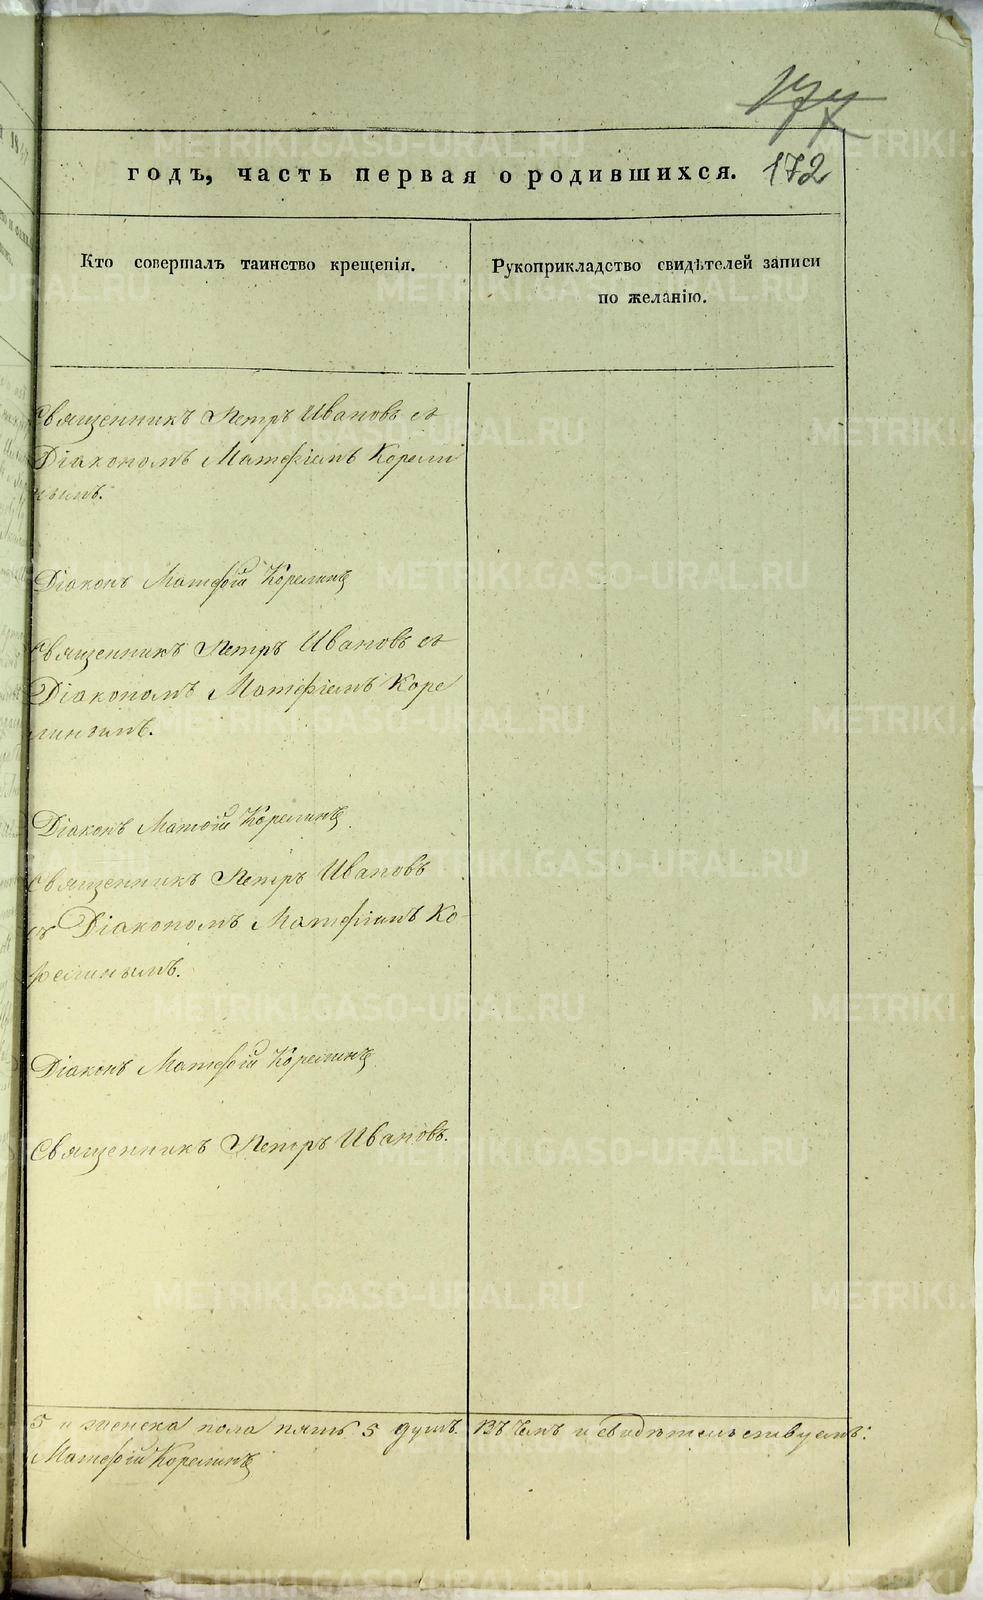 177
годъ, часть первая о родившихся. 172
Кто совершалъ таинство крещенія.
Рукоприкладство свидѣтелей записи
по желанію.
Священникъ Петръ Ивановъ съ
Діакономъ Матѳіемъ Корели
нымъ.
Діаконъ Матѳій Корелинъ
Священникъ Петръ Ивановъ съ
Діакономъ Матѳіемъ Коре
линымъ.
Діаконъ Матѳій Корелинъ
Священникъ Петръ Ивановъ
съ Діакономъ Матѳіемъ Ко-
релинымъ.
Діаконъ Матѳій Корелинъ
Священникъ Петръ Ивановъ.
5 и женска пола пять 5 душъ. Въ чемъ и свидѣтельствуемъ:
Матѳій Корелинъ
METRIKI.GASO-URAL.RU